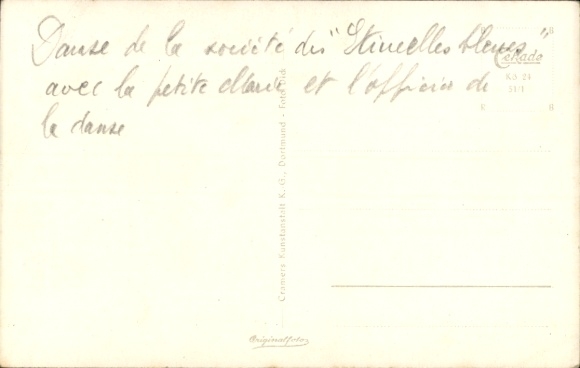 Danse de la société des "Etincelles bleues"
avec la petite Marie et l'officier de
la danse
Cekado
Kö. 24
31/1
Cramers Kunstanstalt K.-G., Dortmund - Foto
Originalfoto